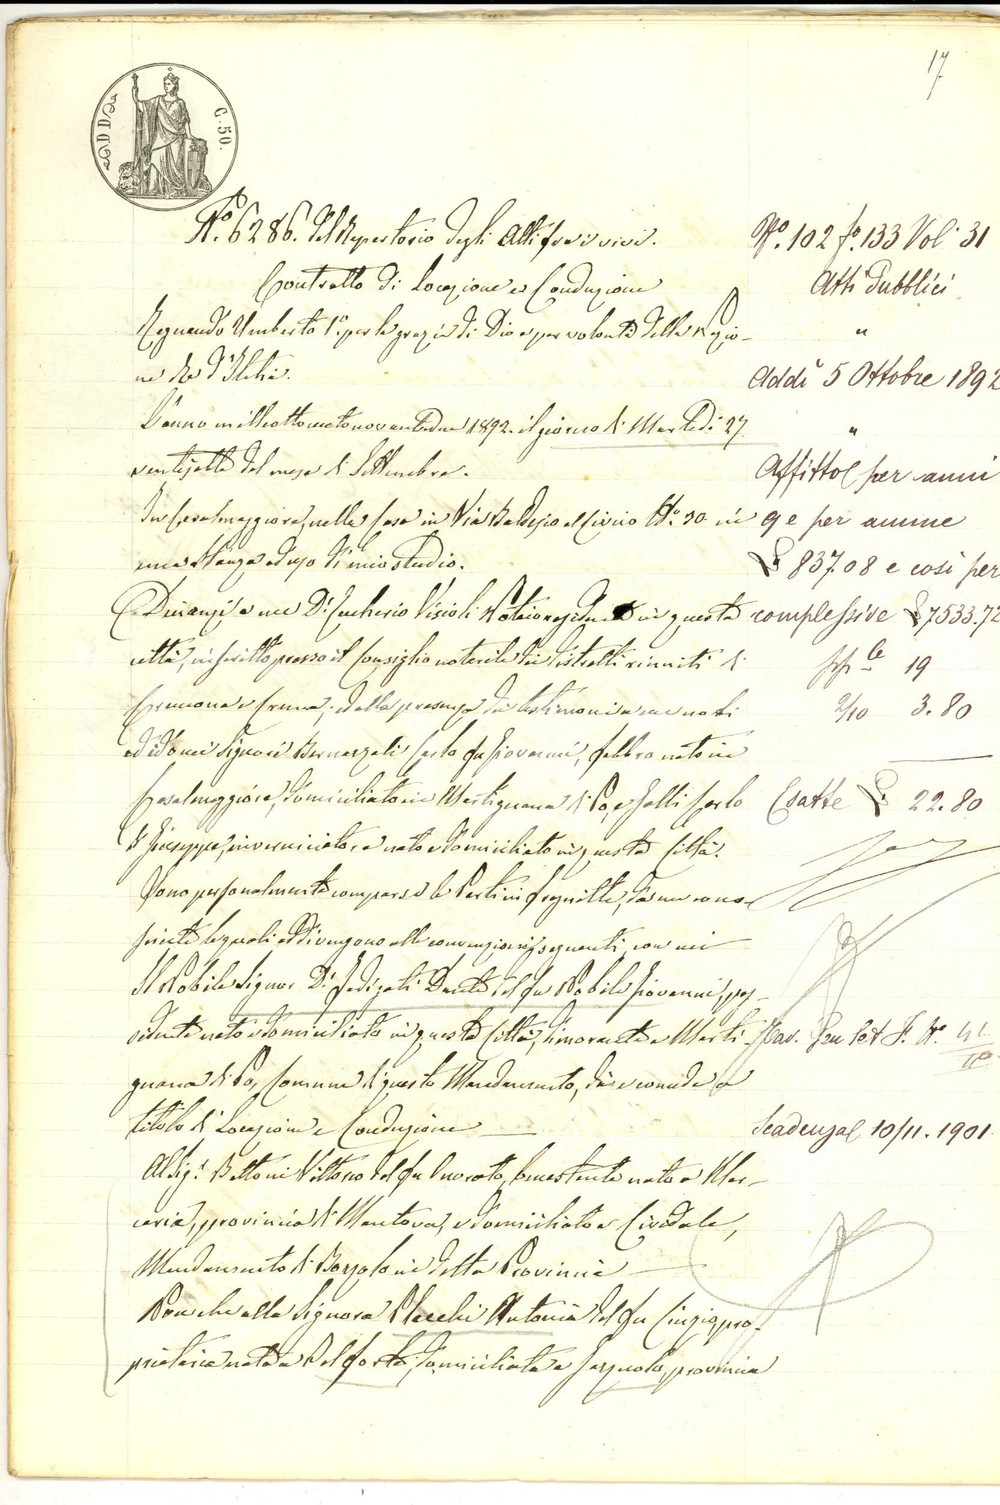 17
C. 50.
N.º 6286. del Repertorio degli Atti fra i vivi.
Contratto di Locazione e Conduzione
Regnando Umberto 1º per la grazia di Dio e per volontà della Nazio-
ne Re d'Italia.
L'anno milleottocentonovantadue 1892. il giorno di Martedì 27
ventisette del mese di Settembre.
In Casalmaggiore, nella Casa in Via Baldesio al Civico Nº. 30 in
una stanza ad uso di mio studio.
Dinanzi a me Dr. Eucherio Vizioli Notaio residente in questa
città, inscritto presso il Consiglio notarile dei distretti riuniti di
Cremona e Crema, ed alla presenza dei testimoni a me noti
ed idonei Signori Bernazzali Carlo fu Giovanni, fabbro nato in
Casalmaggiore, domiciliato in Martignana di Po, e Galli Carlo
di Giuseppe, inverniciatore nato e domiciliato in questa Città.
Sono personalmente comparse le Parti infrascritte, da me cono-
sciute le quali addivengono alle convenzioni seguenti, con cui
Il Nobile Signor Dr. Fadigati Dante del fu Nobile Giovanni, pos-
sidente nato e domiciliato in questa Città, dimorante a Marti-
gnana di Po, Comune di questo Mandamento, dà e concede a
titolo di Locazione e Conduzione
Al Sig.r Bettoni Vittorio del fu Onorato, benestante nato a Mar-
caria, provincia di Mantova, e domiciliato a Cividale,
Mandamento di Bozzolo in detta Provincia
Nonchè alla Signora Antonia del fu Luigi, pro-
prietaria nata a Belforte, domiciliata a Gazzuolo, provincia
Nº. 102 fº. 133 Vol. 31
Atti Pubblici
"
Addì 5 Ottobre 1892
"
Affitto per anni
9 e per annue
£ 837.08 e così per
complessive £ 7533.72
19
2/10 3.80
Esatte £ 22.80
Scadenza 10/11. 1901